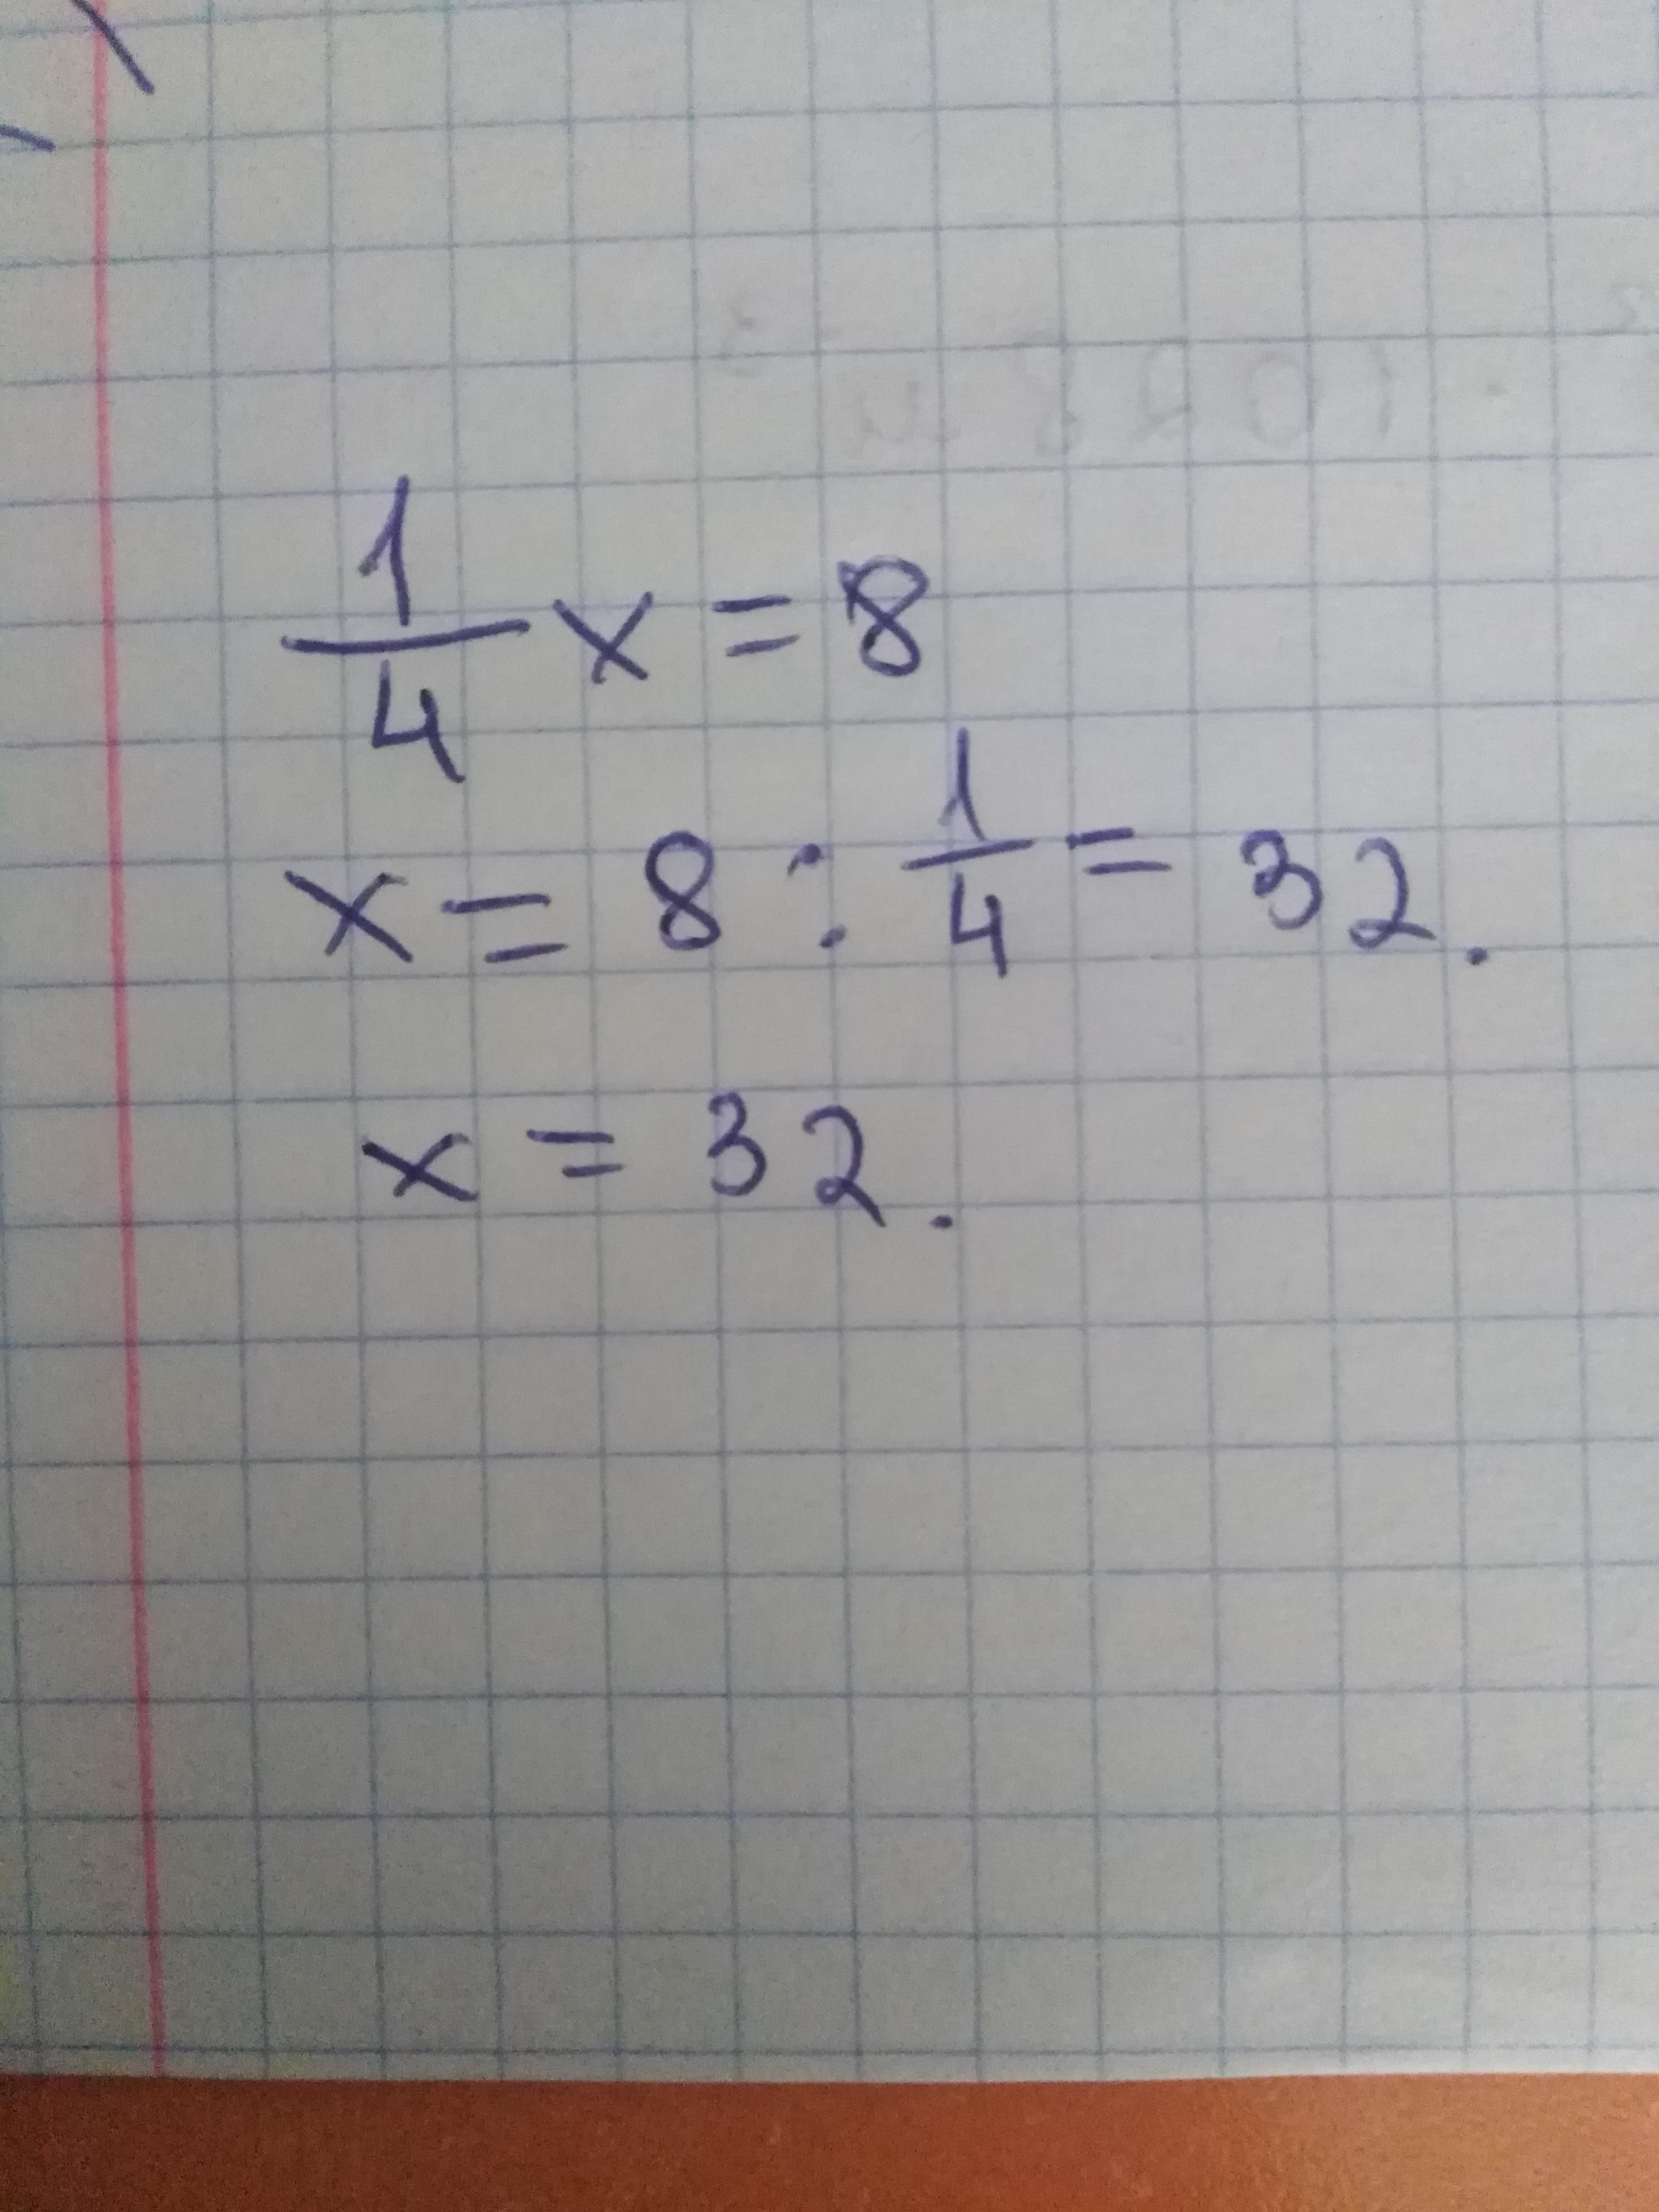 1/4 x = 8
x = 8 : 1/4 = 32.
x = 32.